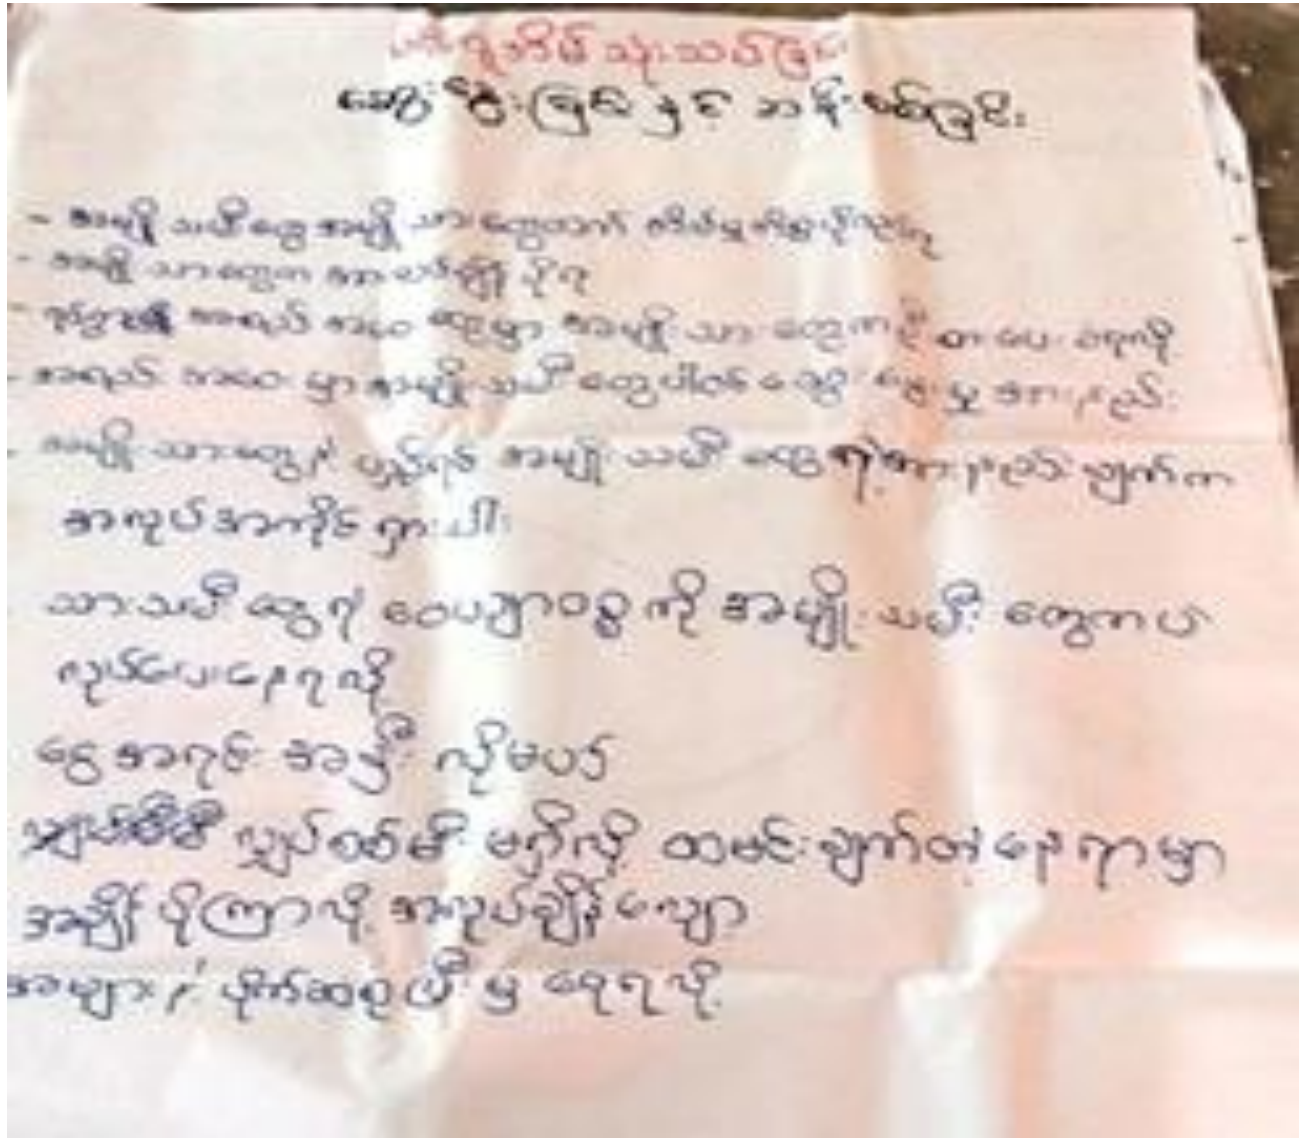 ဆွေးနွေးခြင်းနှင့် ဆန်းစစ်ခြင်း
- အမျိုးသမီးတွေအမျိုးသားတွေထက် အိမ်မှုကိစ္စပိုလုပ်ရ
- အမျိုးသားတွေက အားလပ်ချိန်ပိုရ
အစည်းအဝေးတွေမှာ အမျိုးသားတွေကို ဦးစားပေးခံရလို့
- အစည်းအဝေးမှာ အမျိုးသမီးတွေပါဝင် ဆွေးနွေးမှု အားနည်း
- အမျိုးသားတွေနဲ့ ယှဉ်ရင် အမျိုးသမီးတွေရဲ့အားနည်းချက်က
အလုပ်အကိုင်ရှားပါး
သားသမီးတွေရဲ့ ဝေယျာဝစ္စကို အမျိုးသမီးတွေကပဲ
လုပ်ပေးနေရလို့
ငွေအရင်းအနှီး လိုမယ်
လျှပ်စစ်မီး မရှိလို့ ထမင်းချက်တဲ့နေရာမှာ
အချိန်ပိုကြာလို့ အလုပ်ချိန်လျော့
အများနဲ့ ပိုက်ဆံစုပြီးမှ ရေရလို့